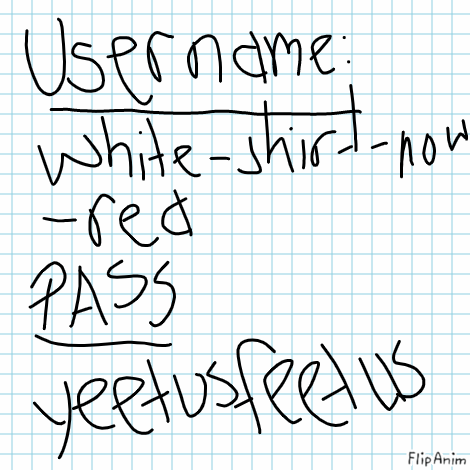 Username:
white-shirt-now
-red
PASS
yeetusfeetus
FlipAnim